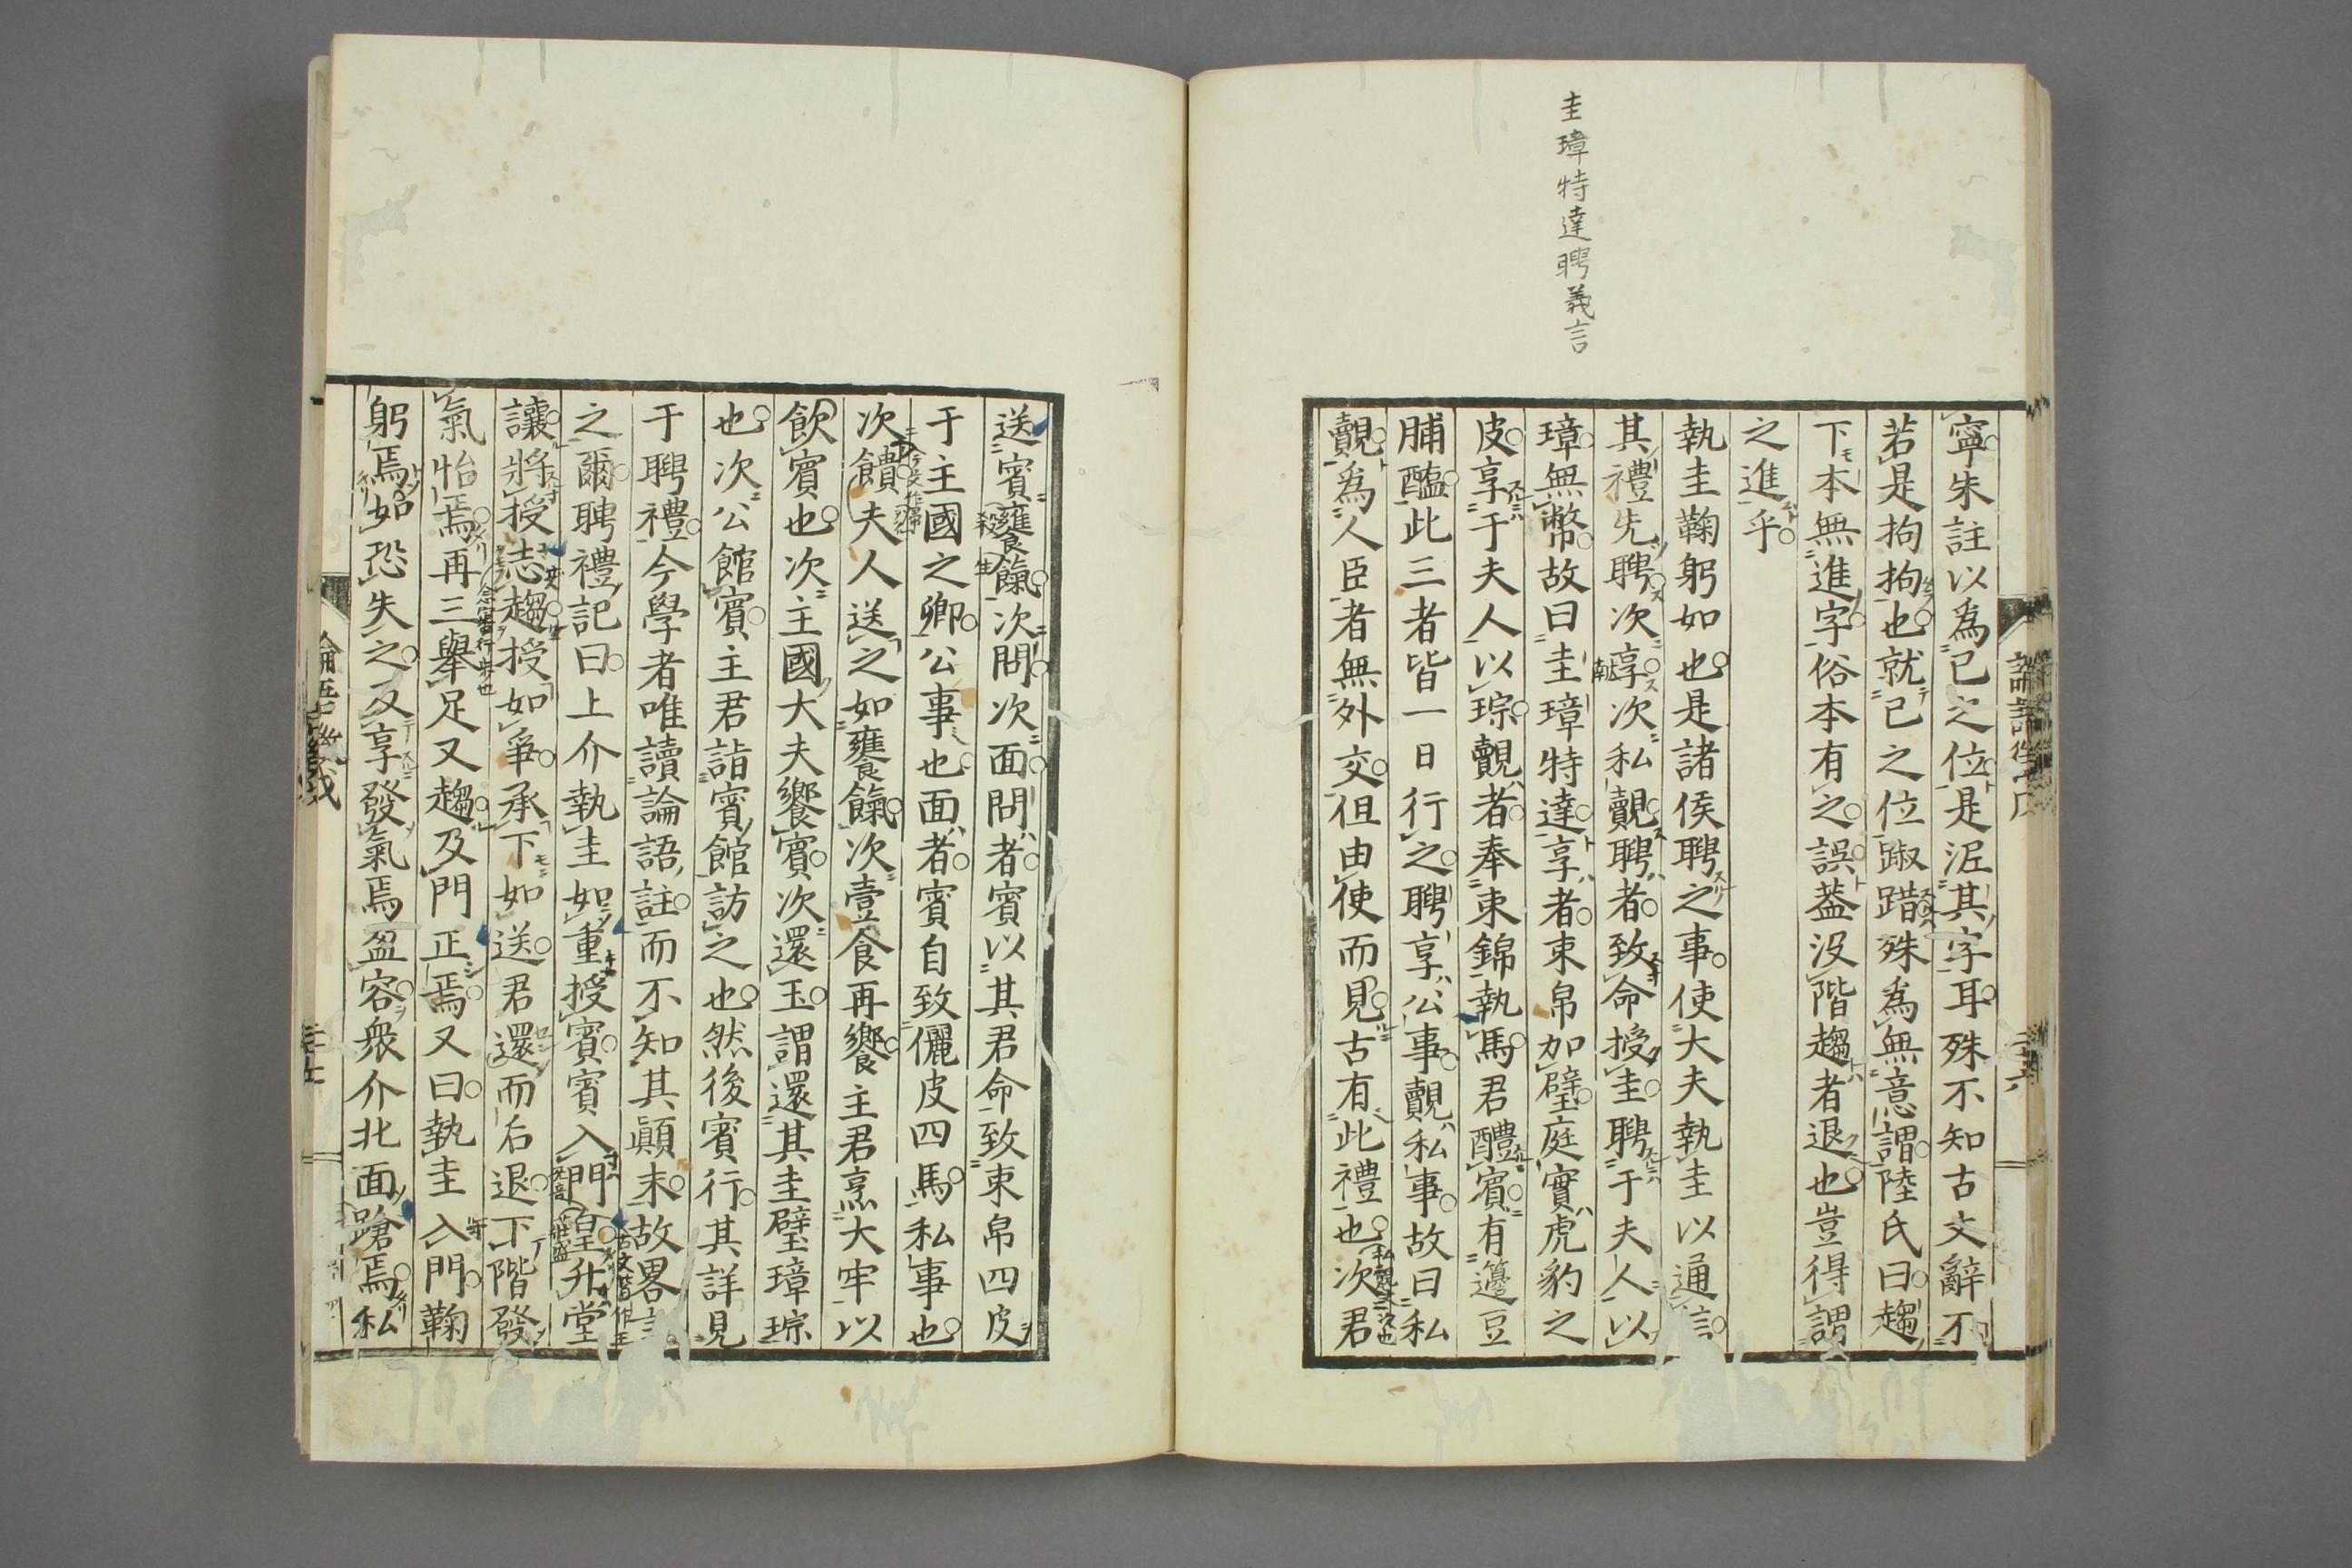 圭璋特達聘義言
寧朱註以爲已之位是泥其字耳殊不知古文辭不
若是拘拘也就已之位踧踖殊爲無意謂陸氏曰趨
下本無進字俗本有之誤蓋沒階趨者退也豈得謂
之進乎
執圭鞠躬如也是諸侯聘之事使大夫執圭以通言
其禮先聘次享次私覿聘者致命授圭聘于夫人以
璋無幣故曰圭璋特達享者束帛加璧庭實虎豹之
皮享于夫人以琮覿者奉束錦執馬君醴賓有籩豆
脯醢此三者皆一日行之聘享公事覿私事故曰私
覿爲人臣者無外交但由使而見古有此禮也次君
送賓饔餼次問次面問者賓以其君命致束帛四皮
于主國之卿公事也面者賓自致儷皮四馬私事也
次饋夫人送之如饔餼次壹食再饗主君烹大牢以
飲賓也次主國大夫饗賓次還玉謂還其圭璧璋琮
也次公館賓主君詣賓館訪之也然後賓行其詳見
于聘禮今學者唯讀論語註而不知其顚末故畧
之爾聘禮記曰上介執圭如重授賓賓入門皇升堂
讓將授志趨授如爭承下如送君還而后退下階發
氣怡焉再三舉足又趨及門正焉又曰執圭入門鞠
躬焉如恐失之及享發氣焉盈容衆介北面蹌焉私